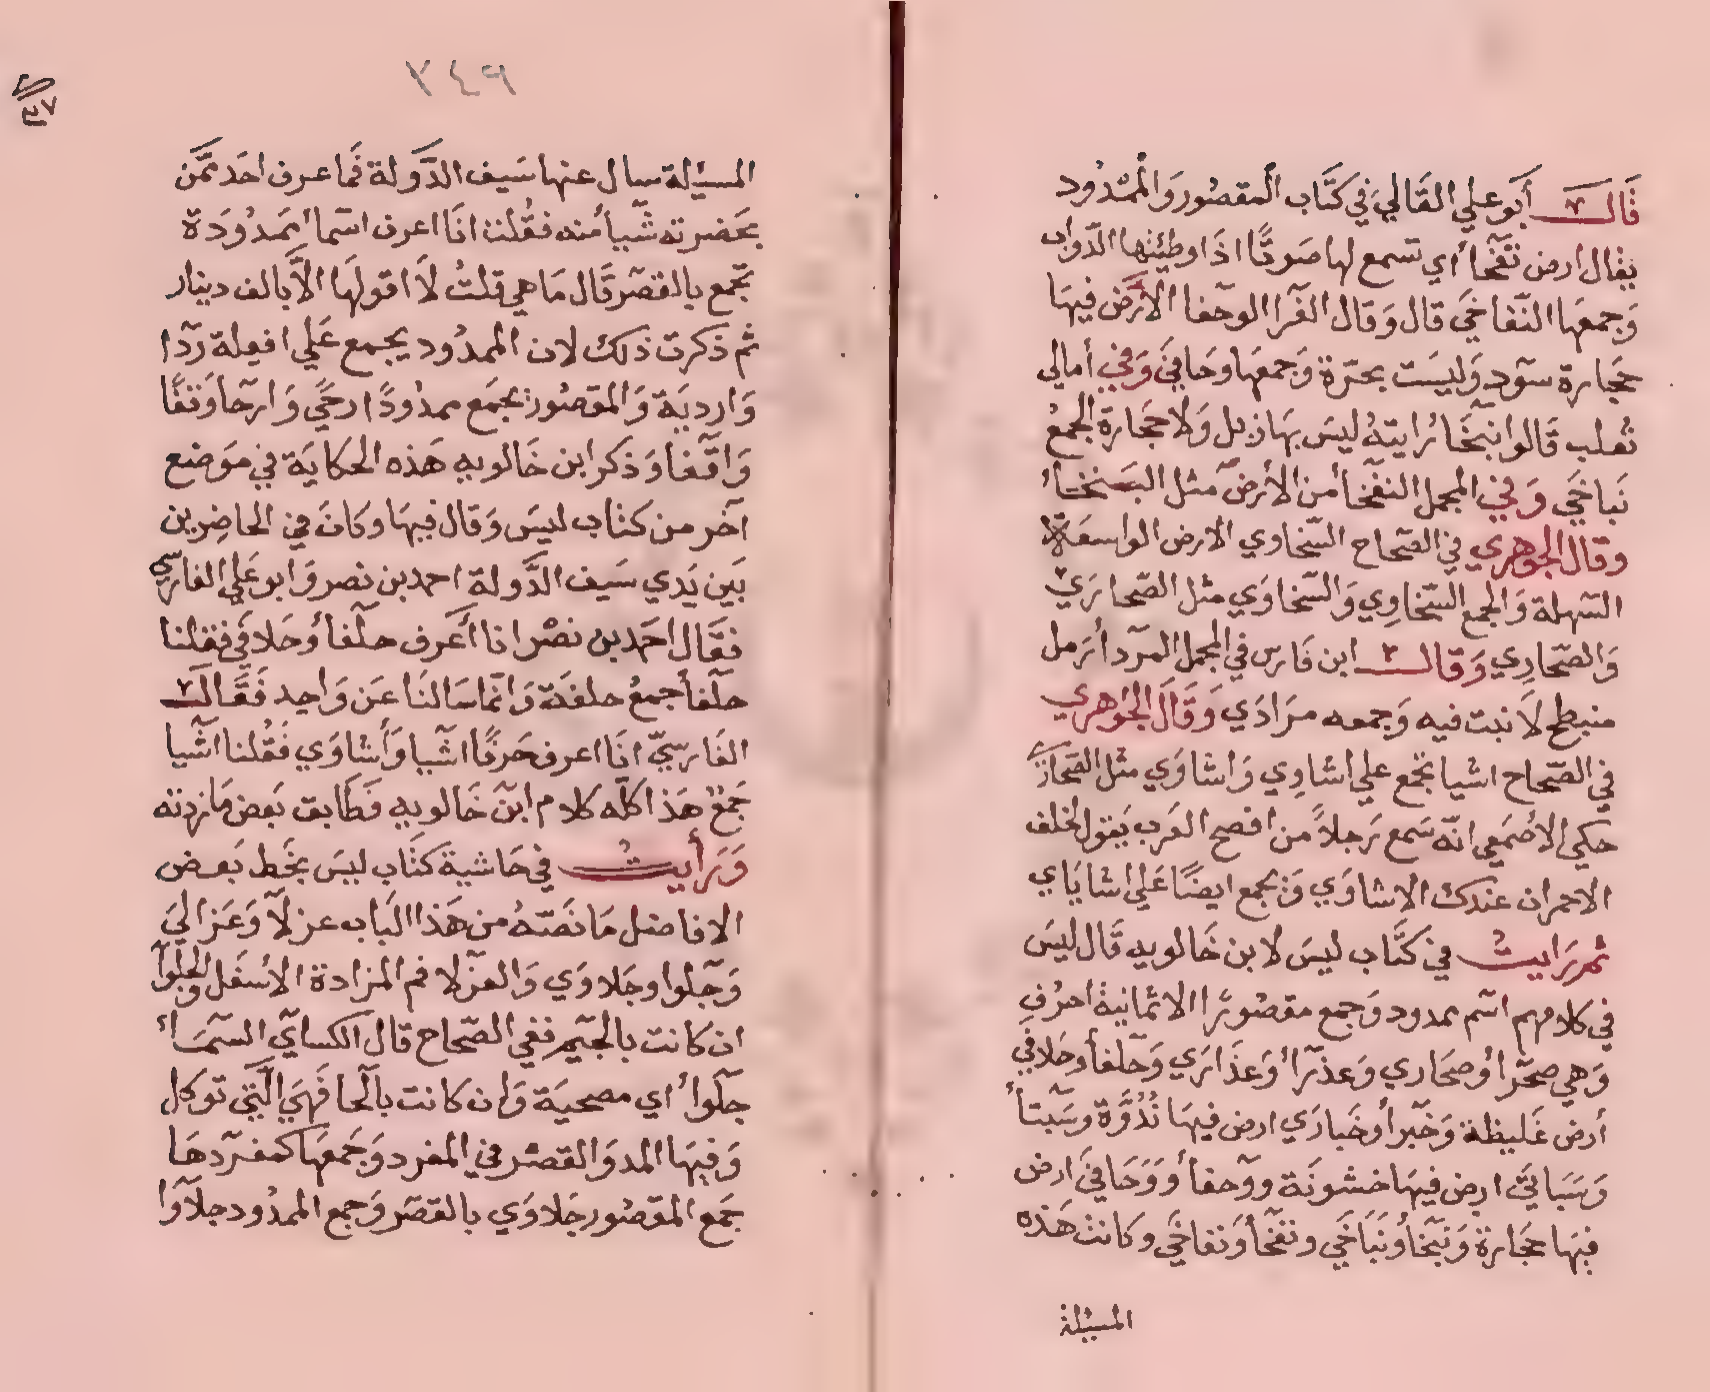 قال أبو علي القالي في كتاب المقصور والممدود
يقال ارض نفخا أي تسمع لها صوتا اذا وطئتها الدواب
وجمعها النفاخي قال وقال الفرا الوحفا الارض فيها
حجارة سود وليست بحرة وجمعها وحافي وفي أمالي
ثعلب قالوا نبخا رابية ليس بها رمل ولا حجارة الجمع
نباخي وفي المجمل النفخا من الأرض مثل السخا
وقال الجوهري في الصحاح السخاوي الارض الواسعة
السهلة والجمع السخاوِي والسخاوَي مثل الصحارَي
والصحارِي وقال ابن فارس في المجمل المردا رمل
منبطح لا نبت فيه وجمعه مرادي وقال الجوهري
في الصحاح اشيا تجمع علي اشاوِي واشاوَي مثل الصحارَي
حكي الاصمعي انه سمع رجلاً من افصح العرب يقول لخلف
الاحمر ان عندك الاشاوَي وتجمع ايضًا علي اشاياي
ثم رايت في كتاب ليس لابن خالويه قال ليس
في كلامهم اسم ممدود وجمع مقصورًا الا ثمانية احرف
وهي صحرا وصحاري وعذرا وعذارَي وصلفا وصلافي
أرض غليظة وخبرا وخبارَي ارض فيها ندُوّة وسبتا
وسباتي ارض فيها خشونة ووحفا ووحافي ارض
فيها حجارة ونبخا ونباخي ونفخا ونفاخي وكانت هذه
المسئلة
٢٤٦
٣٧
المسئلة سال عنها سيف الدولة فما عرف احد ممن
بحضرته شيا منه فقلت انا اعرف اسما ممدودة
تجمع بالقصر قال ما هي قلتُ لا اقولها الا بالف دينار
ثم ذكرت ذلك لان الممدود يجمع علي افعلة ردا
واردية والمقصور يجمع ممدودًا رحًي وارحا وقفًا
واقفا وذكر ابن خالويه هذه الحكاية في موضع
آخر من كتاب ليس وقال فيها وكان في الحاضرين
بين يدي سيف الدولة احمد بن نصر وابو علي الفارسي
فقال احمد بن نصر انا أعرف حلفا وحلافي فقلنا
حلفا جمع حلفة وانما سالنا عن واحد فقال
الفارسيّ انا اعرف حرفًا اشيا وأشاوي فقلنا اشيا
جمع هذا كله كلام ابن خالويه فطابق بعض ما زدته
ورأيت في حاشية كتاب ليس بخط بعض
الافاضل ما نصّهُ من هذا الباب عزلا وعزالي
وجلوا وجلاوي والعزلا فم المزادة الاسفل والجلوا
ان كانت بالجيم ففي الصحاح قال الكساي السما
جلوا أي مصحية وان كانت بالحا فهي التي توكل
وفيها المد والقصر في المفرد وجمعها كمفردها
جمع المقصور حلاوَي بالقصر وجمع الممدود حلاوا